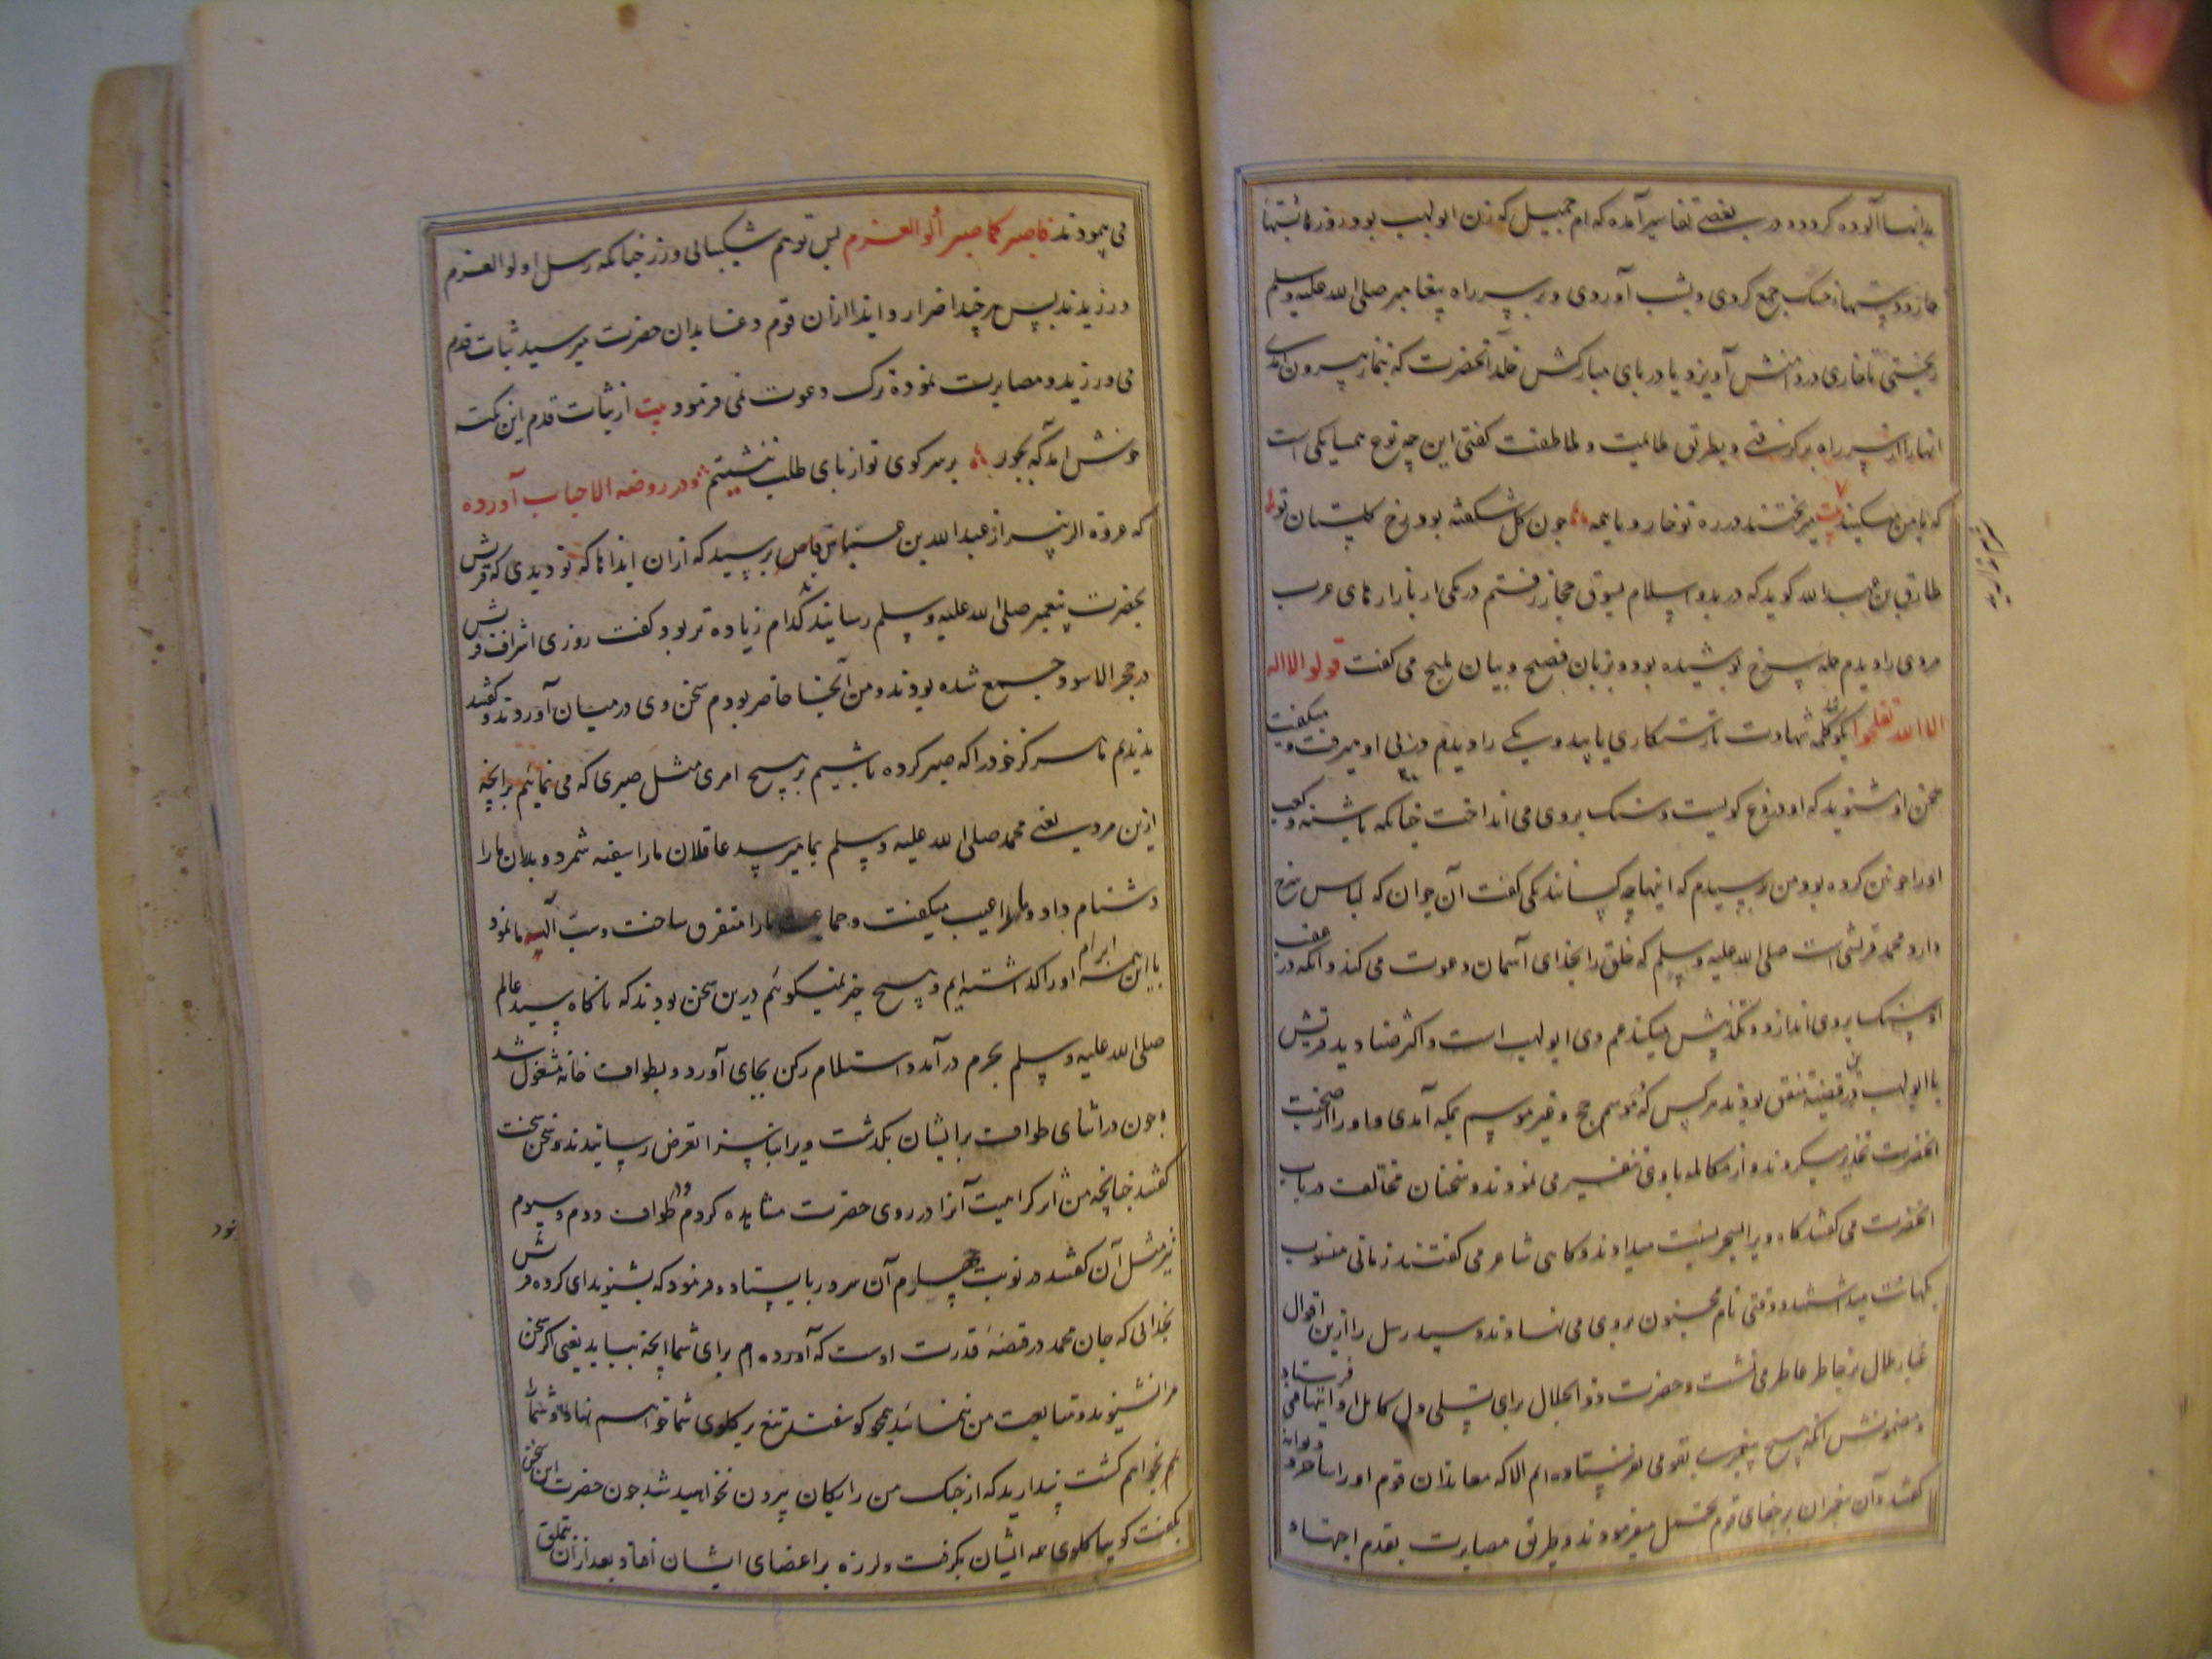 بدانها آلوده کردد و در بعضی تفاسیر آمده که ام جمیل که زن ابو لهب بود روز
خار و جمع کردی و بشب آوردی و بر سر راه پیغامبر صلی الله علیه وسلم
ریختی تا خاری در دامنش آویزد یا در پای مبارکش خلد آنحضرت که بنماز بیرون آمدی
انها را از سر راه و بطریق ملایمت و ملاطفت کفتی این چه نوع همسایکی است
که با من میکنید بیت میریختند در ره تو خار و با همه چون کل شکفته بود رخ کلستان تو
طارق بن عبد الله کوید که در بدو اسلام بسوق مجاز رفتم در یکی از بازارهای عرب
مردی را دیدم حله سرخ پوشیده بود و بزبان فصیح و بیان ملیح می کفت قولوا لا اله
الا الله تفلحوا بکو کلمه شهادت تا رستکاری یابید و یکی را دیدم در پی او میرفت و میکفت
سخن او مشنوید که او دروغ کویست و سنک بروی می انداخت چنانکه پاشنه و کعب
او را خونین کرده بود من پرسیدم که اینها چه کسانند یکی کفت آن جوان که لباس سرخ
دارد محمد قرشی است صلی الله علیه وسلم که خلق را بخدای آسمان دعوت می کند و آنکه در عقب
او سنک بروی اندازد و تکذیبش میکند عم وی ابو لهب است و اکثر صنادید قریش
با ابو لهب درین قضیه متفق بودند هر کس که موسم حج و غیر موسم بمکه آمدی او را از صحبت
آنحضرت تحذیر میکردند و از مکالمه با وی تنفیر می نمودند و سخنان مخالف در باب
آنحضرت می کفتند کاه ویرا بسحر نسبت میدادند و کاهی شاعر می کفتند زمانی منسوب
بکهانت میداشتند و وقتی نام مجنون بروی می نهادند و سید رسل را ازین اقوال
غبار ملال بر خاطر عاطر می نشست و حضرت ذو الجلال برای تسلی دل کامل او آیتها می فرستاد
و مضمونش آنکه هیچ پیغمبری بقومی نفرستاده ایم الا که معاندان قوم او را ساحر و دیوانه
کفتند و آن پیغمبران بر جفای قوم تحمل میفرمودند و طریق مصابرت بقدم اجتهاد
می پیمودند فاصبر کما صبر أولوا العزم پس تو هم شکیبائی ورز چنانکه رسل اولو العزم
ورزیدند پس هر چند اضرار و ایذا ازان قوم دغا بدان حضرت میرسید ثبات قدم
می ورزید و مصابرت نموده ترک دعوت نمی فرمود بیت از ثبات قدم این نکته
خوش آمد که بجور بر سر کوی تو از پای طلب ننشستم و در روضه الاحباب آورده
که عروة الزبیر از عبد الله بن عمرو عاص پرسید که ازان ایذاها که تو دیدی که قریش
بحضرت پیغمبر صلی الله علیه وسلم رسانیدند کدام زیاده تر بود کفت روزی اشراف قریش
در حجر الاسود جمع شده بودند و من آنجا حاضر بودم سخن وی در میان آوردند و کفتند
ندیدیم ما هرکز خود را که صبر کرده باشیم بر هیچ امری مثل صبری که می نمائیم بر آنچه
ازین مرد یعنی محمد صلی الله علیه وسلم بما میرسد عاقلان ما را سفیه شمرد و پدران ما را
دشنام داد و ما را عیب میکفت و جماعت ما را متفرق ساخت و سب آلهه ما نمود
با این همه ابرام او را کذاشته ایم و هیچ چیز نمیکوئیم درین سخن بودند که ناکاه سید عالم
صلی الله علیه وسلم بحرم در آمد و استلام رکن بجای آورد و بطواف خانه مشغول شد
و چون در اثنای طواف بر ایشان بکذشت ویرا تعرض رسانیدند و سخن سخت
کفتند چنانچه من اثر کراهیت آنرا در روی حضرت مشاهده کردم و در طواف دوم و سیوم
نیز مثل آن کفتند در نوبت چهارم آن سرور بایستاد و فرمود که بشنوید ای کروه قریش
بخدائی که جان محمد در قبضهٔ قدرت اوست که آورده ام برای شما آنچه بباید یعنی اکر سخن
مرا نشنوید و متابعت من ننمائید همچو کوسفند تیغ بر کلوی شما خواهم نهاد و شما را
هم بخواهم کشت پندارید که از چنک من رایکان بیرون نخواهید شد چون حضرت این سخن
بکفت کوییا کلوی همه ایشان بکرفت و لرزه بر اعضای ایشان افتاد بعد ازان بتملق